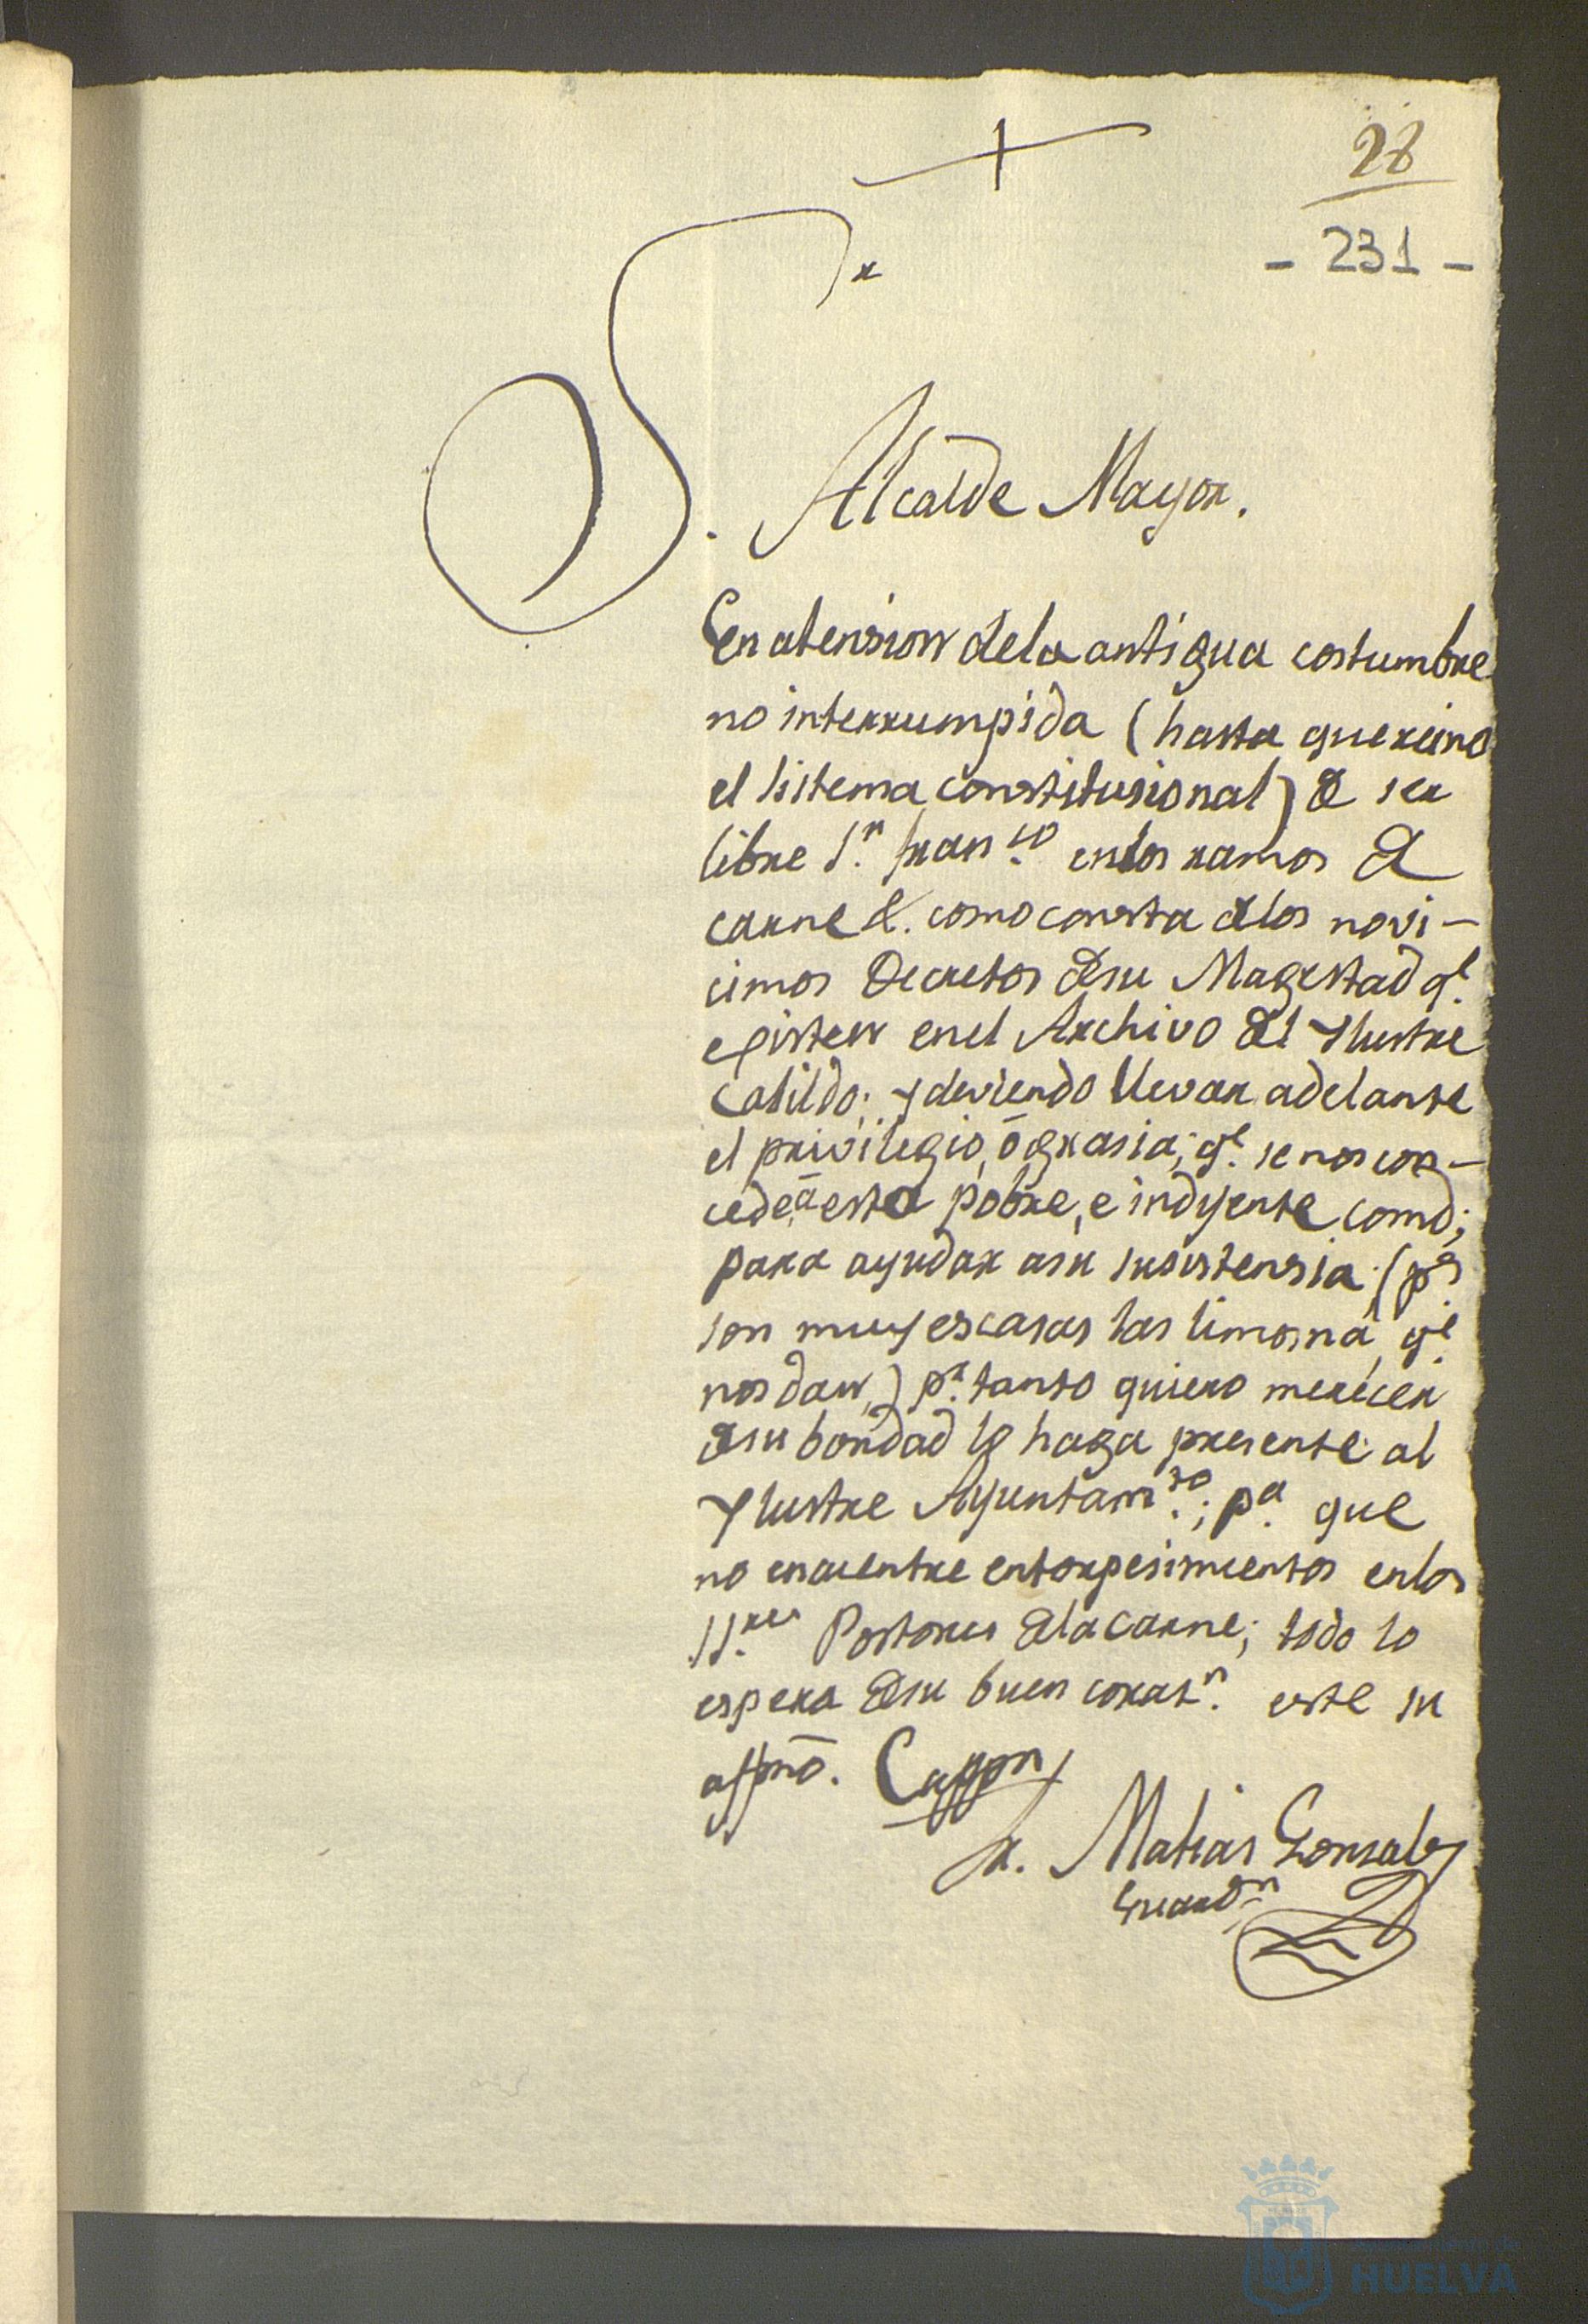 28
- 231 -
Sr
Alcalde Mayor.
En atension dela antigua costumbre
no interrumpida (hasta que reino
el sistema constitusional) de ser
libre Sn. Franco. en los ramos de
carne &. como consta de los novi-
cimos Decretos de su Magestad qe.
existen en el Archivo del Ylustre
Cabildo; y deviendo llevar adelante
el privilegio, ó grasia; qe. se nos con-
cede, á esta pobre, e indijente comd;
para ayudar asu susistensia; (ps
son muy escasas las limosna, qe.
nos dan,) pr. tanto quiero mereser
de su bondad lo haga presente al
Ylustre Ayuntamto.; pa. que
no encuentre entorpesimientos en los
SSres. Postores de la carne; todo lo
espera de su buen corasn. este su
affmo. Cappn
Fr. Matias Gonsalez
Guardn
HUELVA